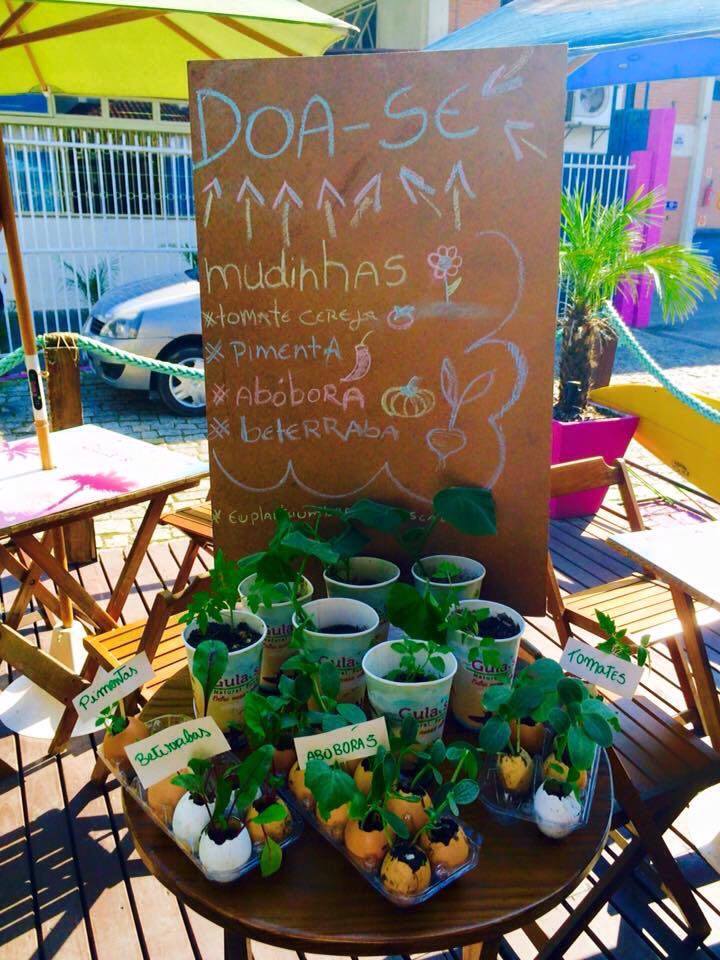 DOA-SE
mudinhas
*tomate cereja
*Pimenta
*Abóbora
*beterraba
Pimentas
Beterrabas
ABÓBORAS
Tomates
Gula
Natural
Gula
Natural
Gula